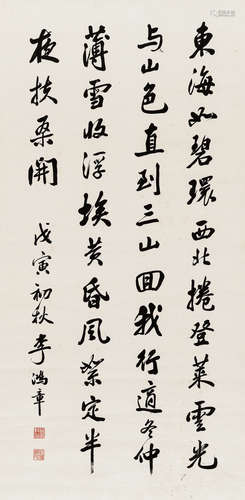 東海如碧環西北捲登萊雲光
与山色直到三山回我行適冬仲
薄雪收浮埃黄昏風絮定半
夜扶桑開
戊寅初秋李鴻章